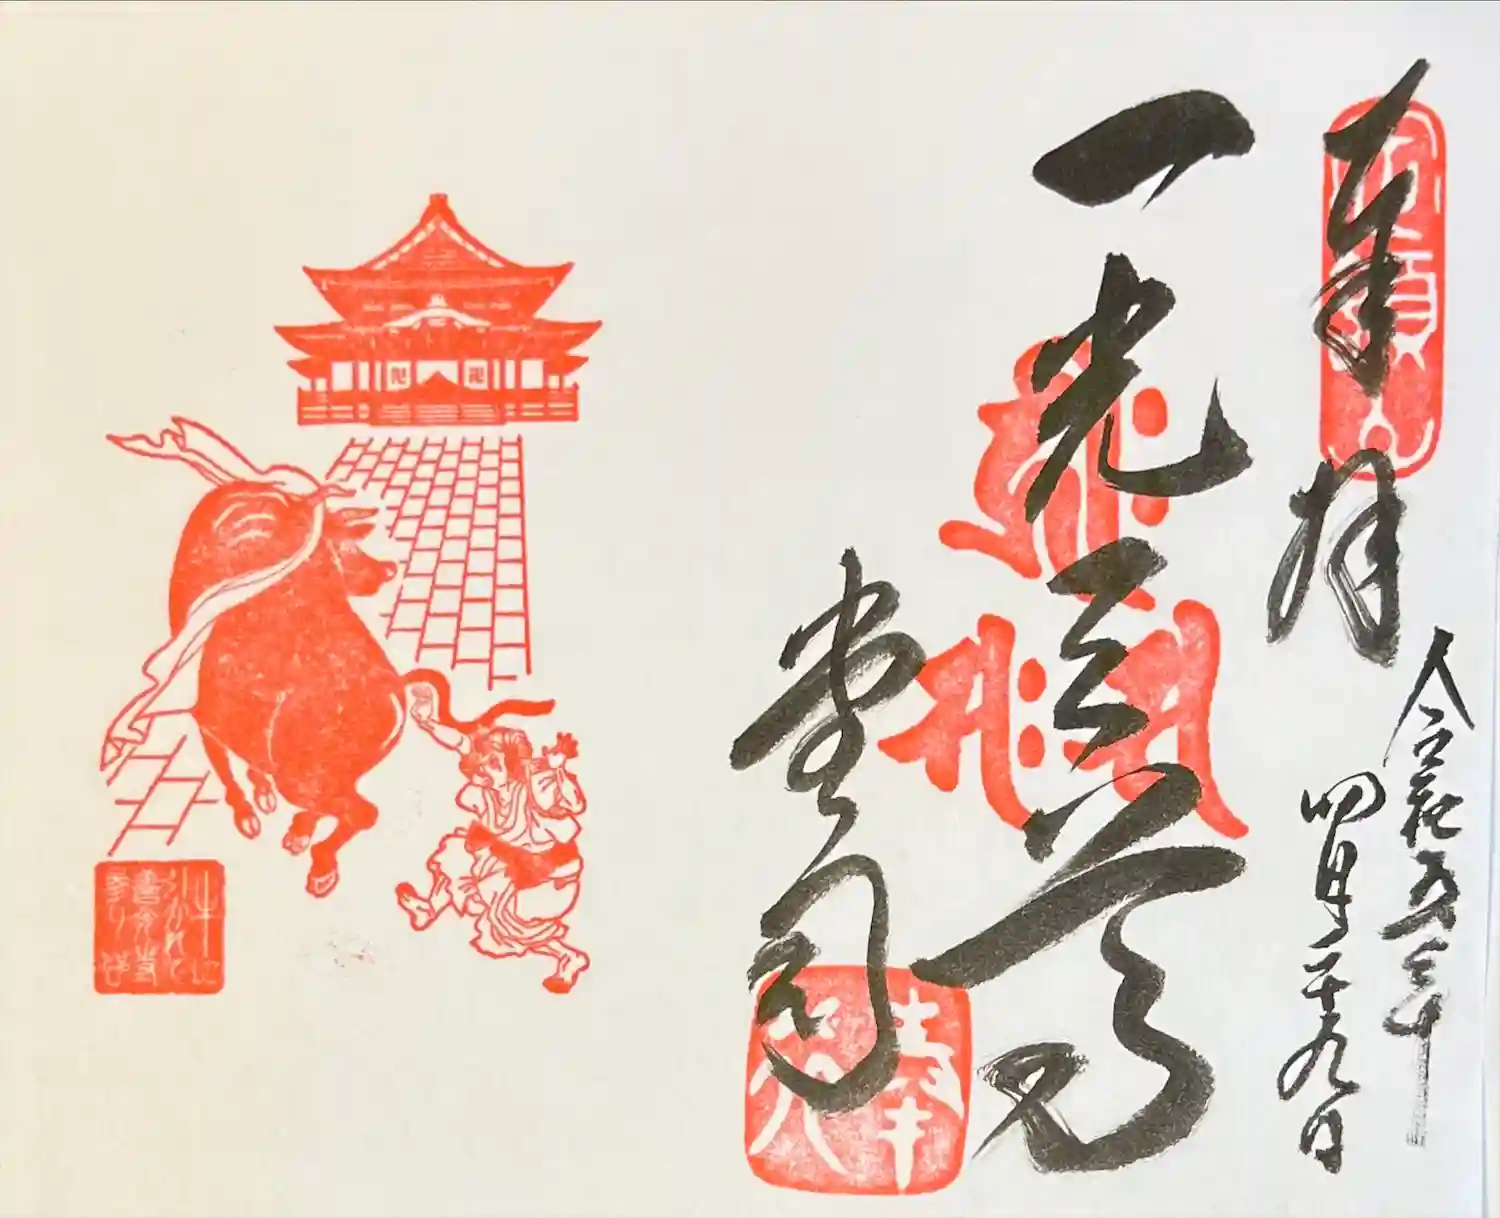 奉拝
令和五年
四月二十九日
一光三尊
堂司
牛に
ひかれて
善光寺
参り